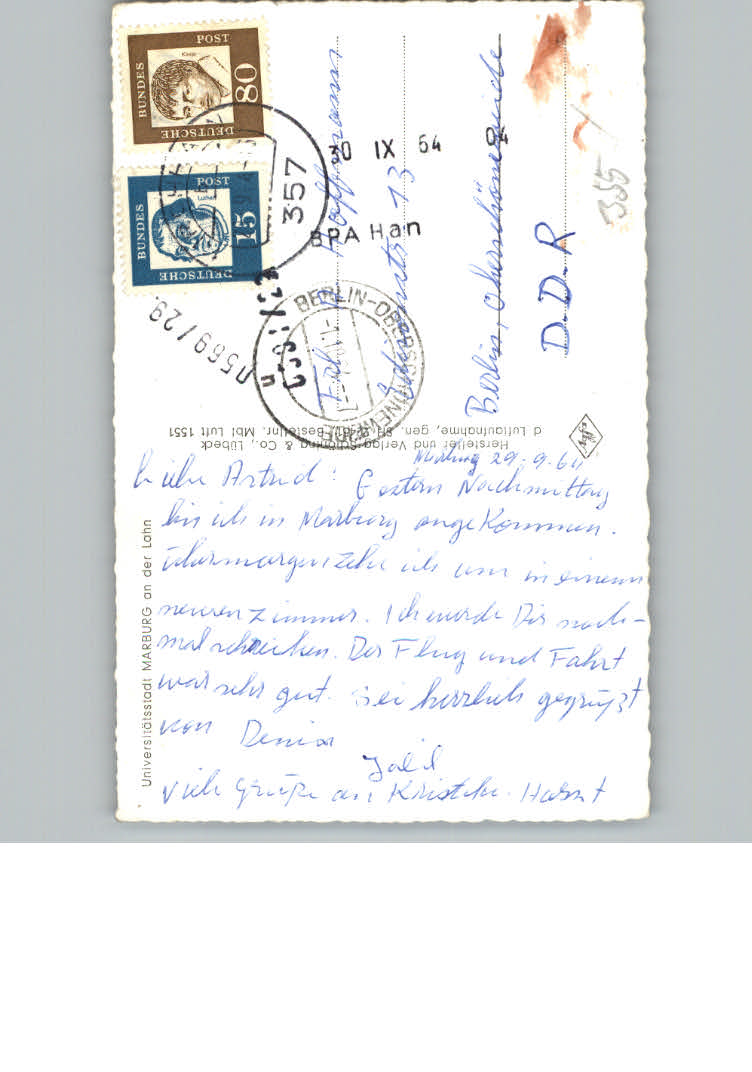 DEUTSCHE
BUNDES
POST
80
DEUTSCHE
BUNDES
POST
15
Luther
357
30 IX 64
BPA Han
0569/29
BERLIN-OBERSCHÖNEWEIDE
Hoffmann
13
Berlin, Oberschöneweide
D.D.R
355
Hersteller und Verlag Schöning & Co., Lübeck
Luftaufnahme, gen. Bestellnr. Mbl Luft 1551
Agfa
Universitätsstadt MARBURG an der Lahn
Marburg 29-9-64
Liebe Astrid: Gestern Nachmittag
bin ich in Marburg angekommen.
übermorgen ziehe ich um in einem
neuen Zimmer. Ich werde Dir noch-
mal schreiben. Der Flug und Fahrt
war sehr gut. Sei herzlich gegrüßt
von Deinem
Jalil
Viele Grüße an